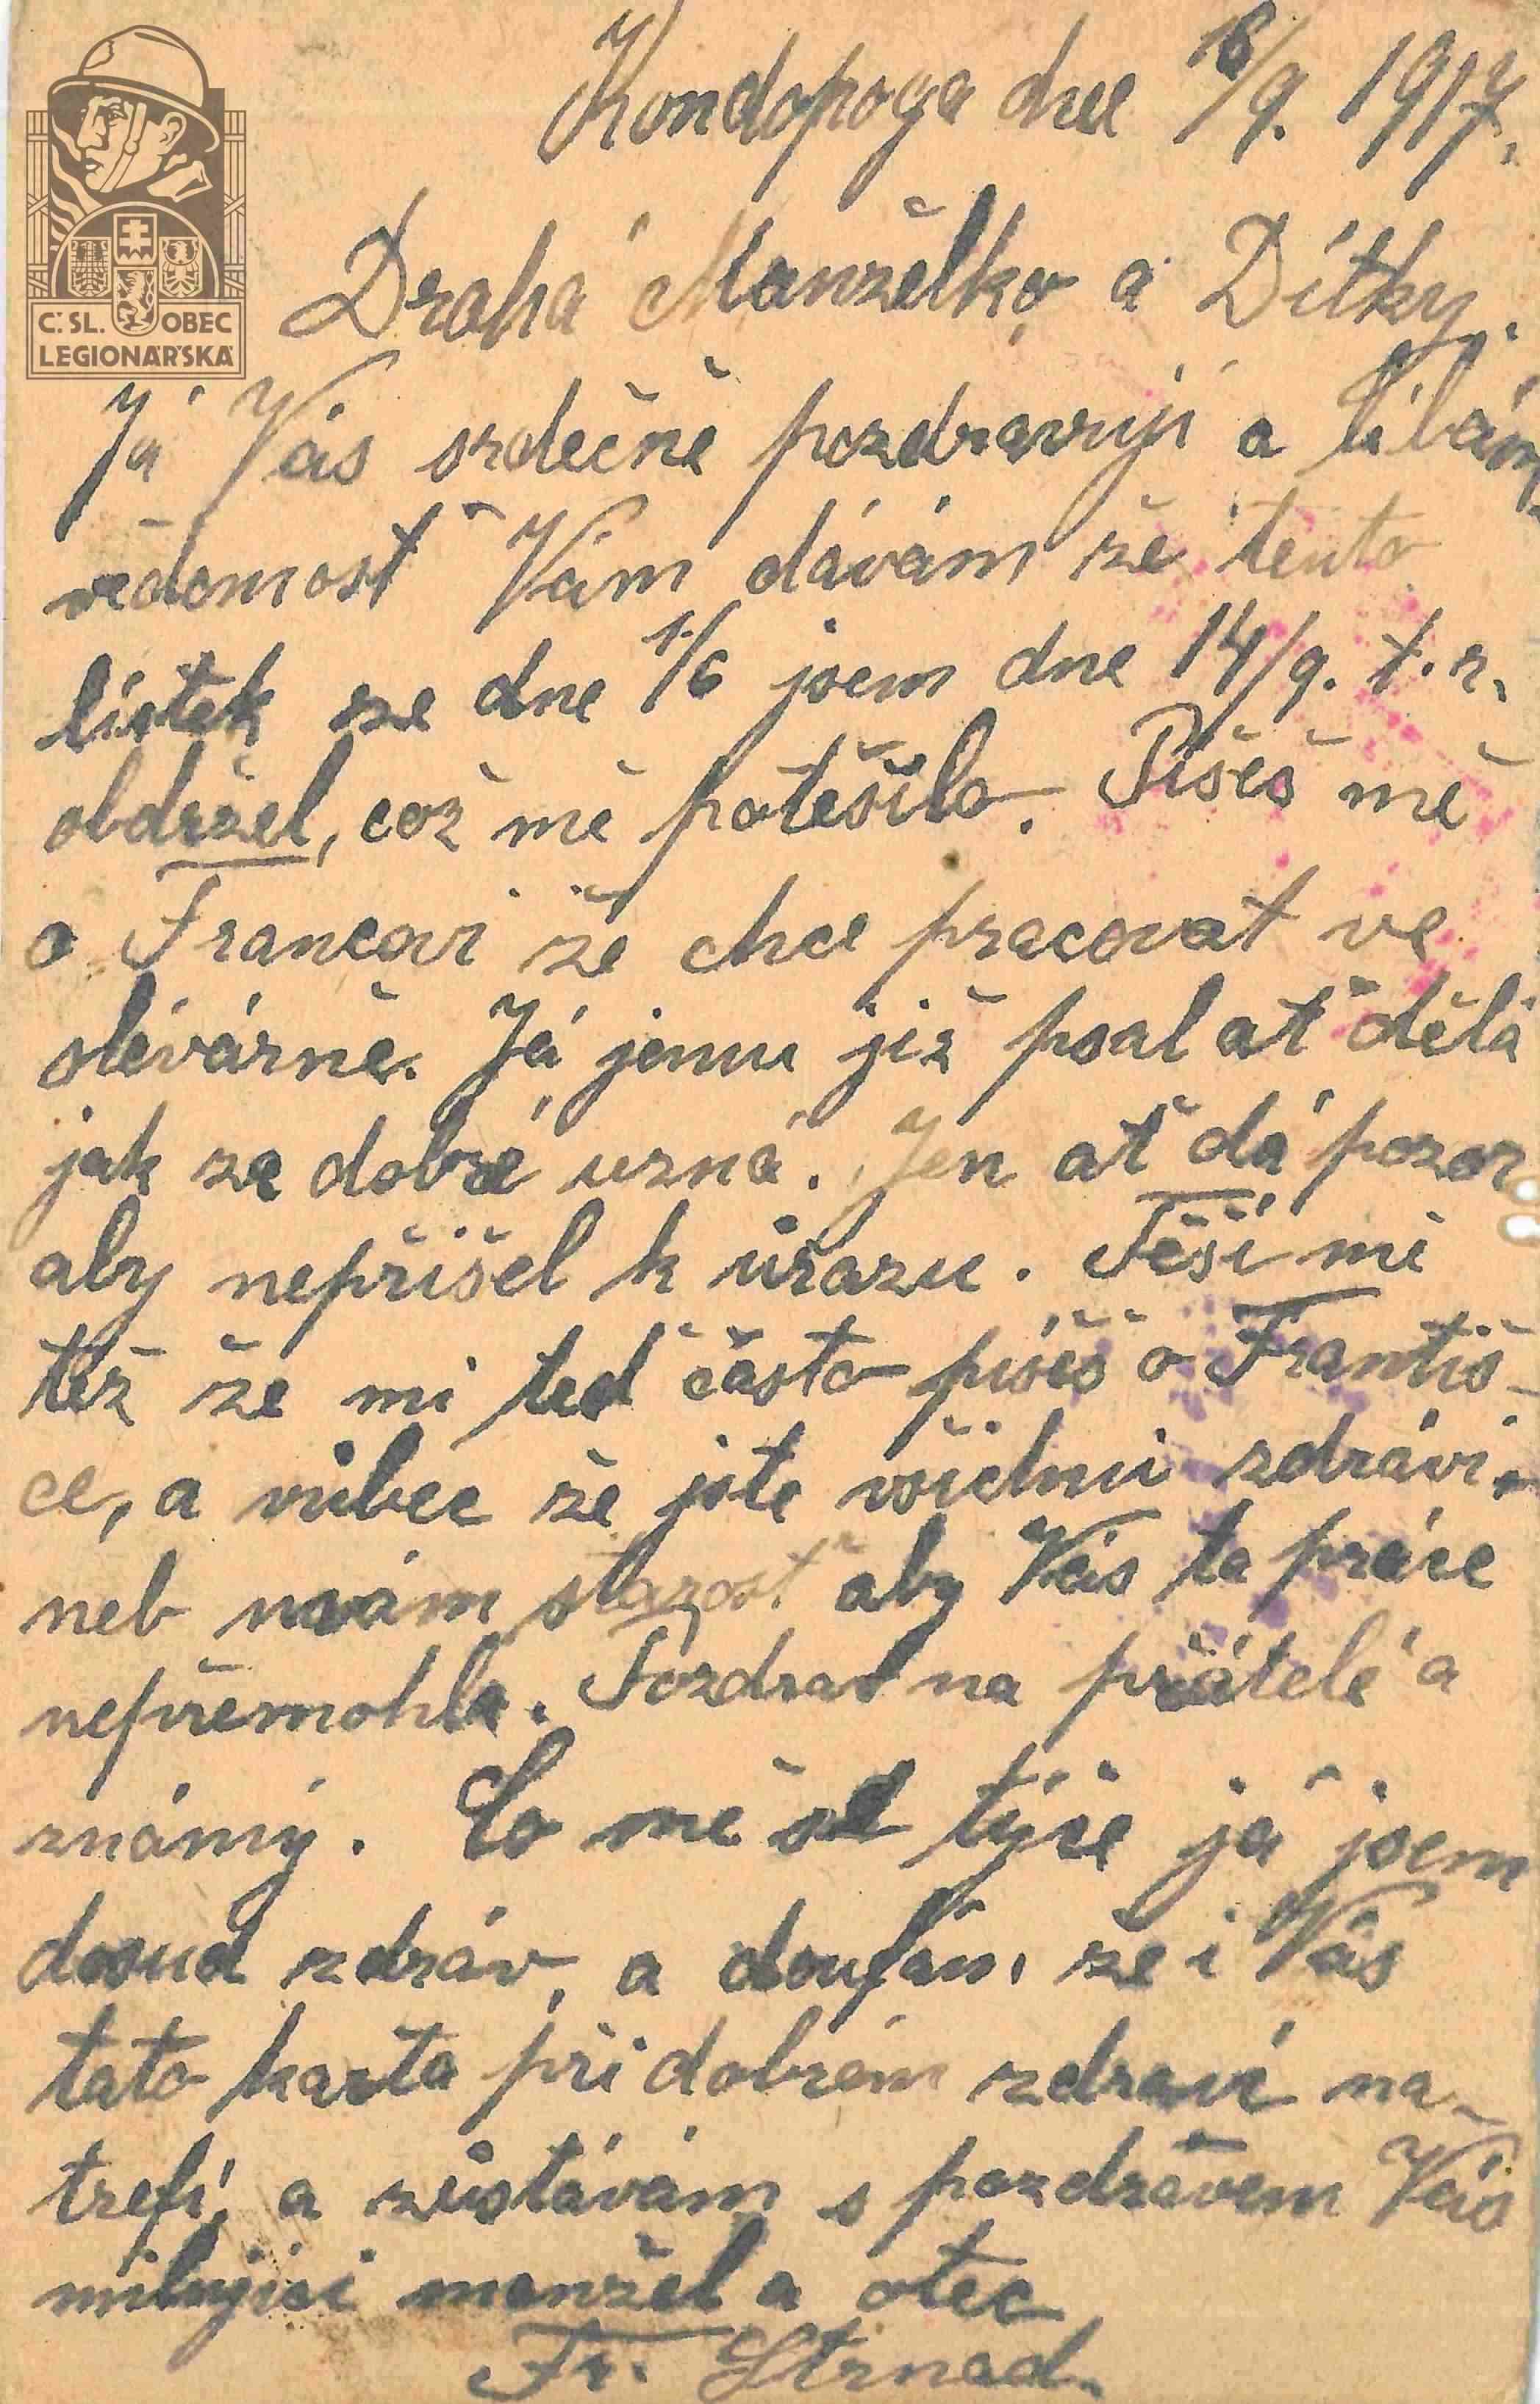 Kondopoga dne 16/9. 1917.
Drahá Manželko a Dítky.
Já Vás srdečně pozdravuji a líbám
vědomost Vám dávám že tento
lístek ze dne 1./6 jsem dne 14/9. t. r.
obdržel, což mě potěšilo. Píšeš mě
o Francovi že chce pracovat ve
slévárně. Já jemu již psal ať dělá
jak za dobré uzná. Jen ať dá pozor
aby nepřišel k úrazu. Těší mě
též že mi teď často píšeš o Františ-
ce, a vůbec že jste všichni zdrávi.
neb mám starost aby Vás ta práce
nepřemohla. Pozdrav na přátelé a
známý. Co mě se týče já jsem
dosud zdráv, a doufám že i Vás
tato karta při dobrém zdraví na-
trefí, a zůstávám s pozdravem Vás
milující manžel a otec
Fr. Strnad.
Č. SL. OBEC
LEGIONÁŘSKÁ